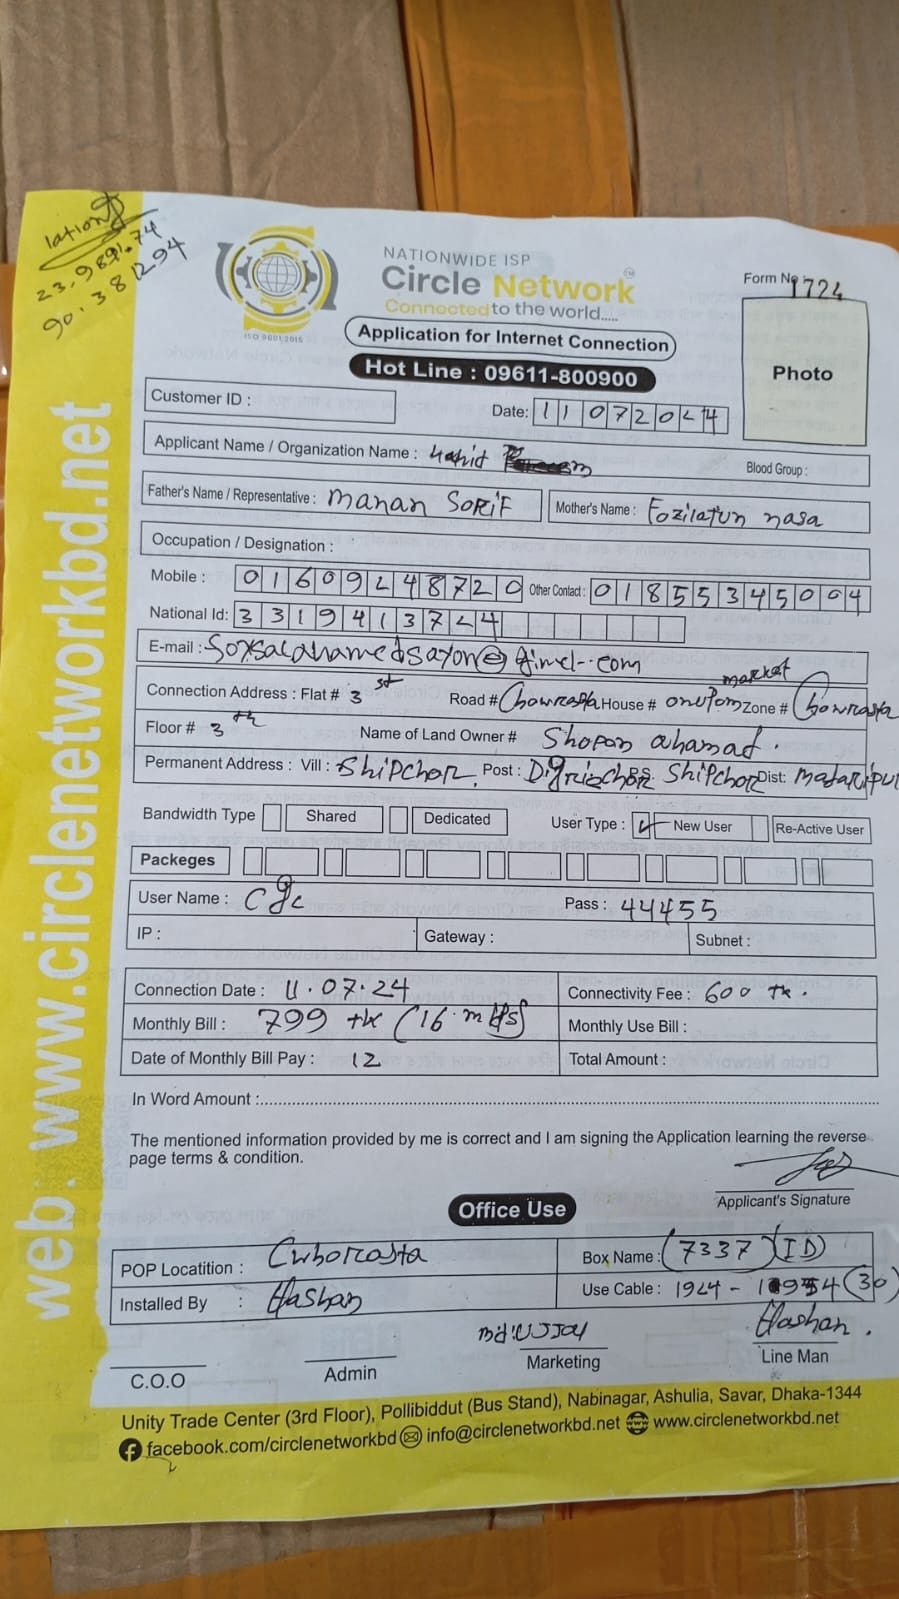 23.989174
90.381294
NATIONWIDE ISP
Circle Network
Connected to the world.....
ISO 9001:2015
Form No 1724
Application for Internet Connection
Hot Line : 09611-800900
Photo
Customer ID :
Date: 11072024
Applicant Name / Organization Name :
Blood Group :
Father's Name / Representative : Manan SORIF
Mother's Name : Fozilatun nasa
Occupation / Designation :
Mobile : 01609248720 Other Contact : 01855345004
National Id: 3319413724
E-mail :
market
Connection Address : Flat # 3 st Road # Chowrasta House # Zone # Chowrasta
Floor # 3 th Name of Land Owner # Shopon ahamad.
Permanent Address : Vill : Shipchor, Post : P.S. Shipchor Dist: madaripur
Bandwidth Type Shared Dedicated User Type : New User Re-Active User
Packeges
User Name : Pass : 44455
IP : Gateway : Subnet :
Connection Date : 11.07.24 Connectivity Fee : 600 tk.
Monthly Bill : 799 tk (16 mbps) Monthly Use Bill :
Date of Monthly Bill Pay : 12 Total Amount :
In Word Amount :
The mentioned information provided by me is correct and I am signing the Application learning the reverse
page terms & condition.
Applicant's Signature
Office Use
POP Locatition : Box Name : (7337) (ID)
Installed By : Hashan Use Cable : 1924 - (30)
Hashan.
C.O.O Admin Marketing Line Man
Unity Trade Center (3rd Floor), Pollibiddut (Bus Stand), Nabinagar, Ashulia, Savar, Dhaka-1344
facebook.com/circlenetworkbd info@circlenetworkbd.net www.circlenetworkbd.net
web: www.circlenetworkbd.net